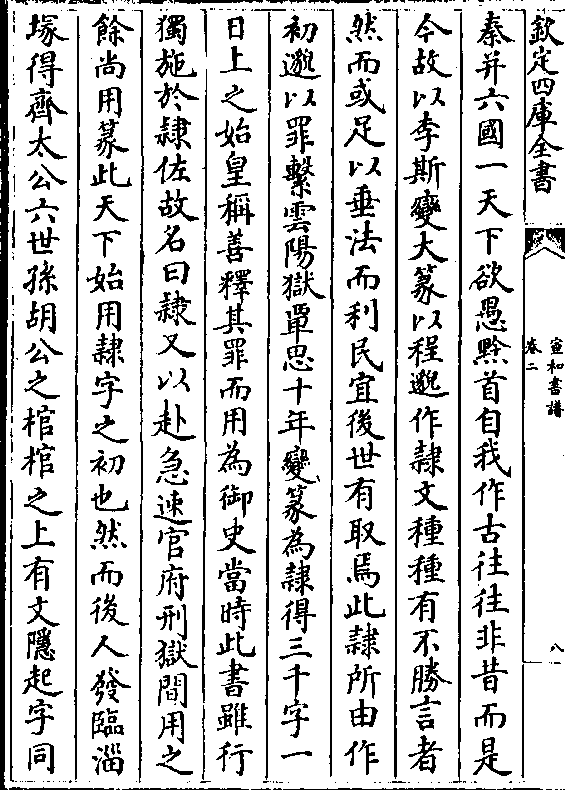 欽定四庫全書
宣和書譜
卷二
八
秦并六國一天下欲愚黔首自我作古往往非昔而是
今故以李斯變大篆以程邈作隸文種種有不勝言者
然而或足以垂法而利民宜後世有取焉此隸所由作
初邈以罪繫雲陽獄覃思十年變篆為隸得三千字一
日上之始皇稱善釋其罪而用為御史當時此書雖行
獨施於隸佐故名曰隸又以赴急速官府刑獄間用之
餘尚用篆此天下始用隸字之初也然而後人發臨淄
塜得齊太公六世孫胡公之棺棺之上有文隱起字同